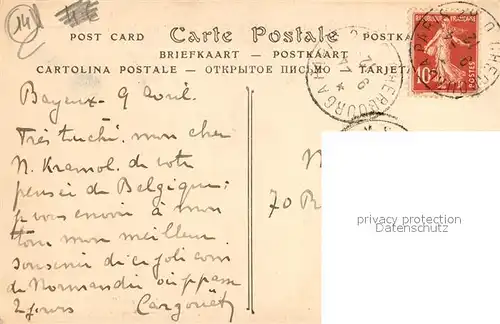 14
POST CARD Carte Postale POSTKA
BRIEFKAART — POSTKAART
CARTOLINA POSTALE — ОТКРЫТОЕ ПИСЬМО TARJETA
REPUBLIQUE FRANÇAISE
10 POSTES
CHERBOURG A
Bayeux 9 avril.
Très touché, mon cher
N. de votre
pensée de Belgique;
je vous envoie à mon
tour mon meilleur
souvenir de ce joli coin
de Normandie où je passe
2 jours
70
privacy protection
Datenschutz